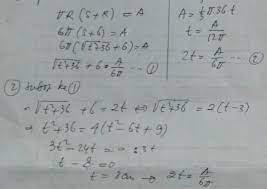 πR(S+R) = A
6π(S+6) = A
6π(√t²+36+6) = A
√t²+36 + 6 = A/6π ... ①
A = 1/3 π36t
t = A/12π
2t = A/6π ... ②
② subst ke ①
√t²+36 + 6 = 2t ⇔ √t²+36 = 2(t-3)
⇒ t²+36 = 4(t²-6t+9)
3t²-24t = 0
t - 8 = 0
t = 8cm → 2t = A/6π